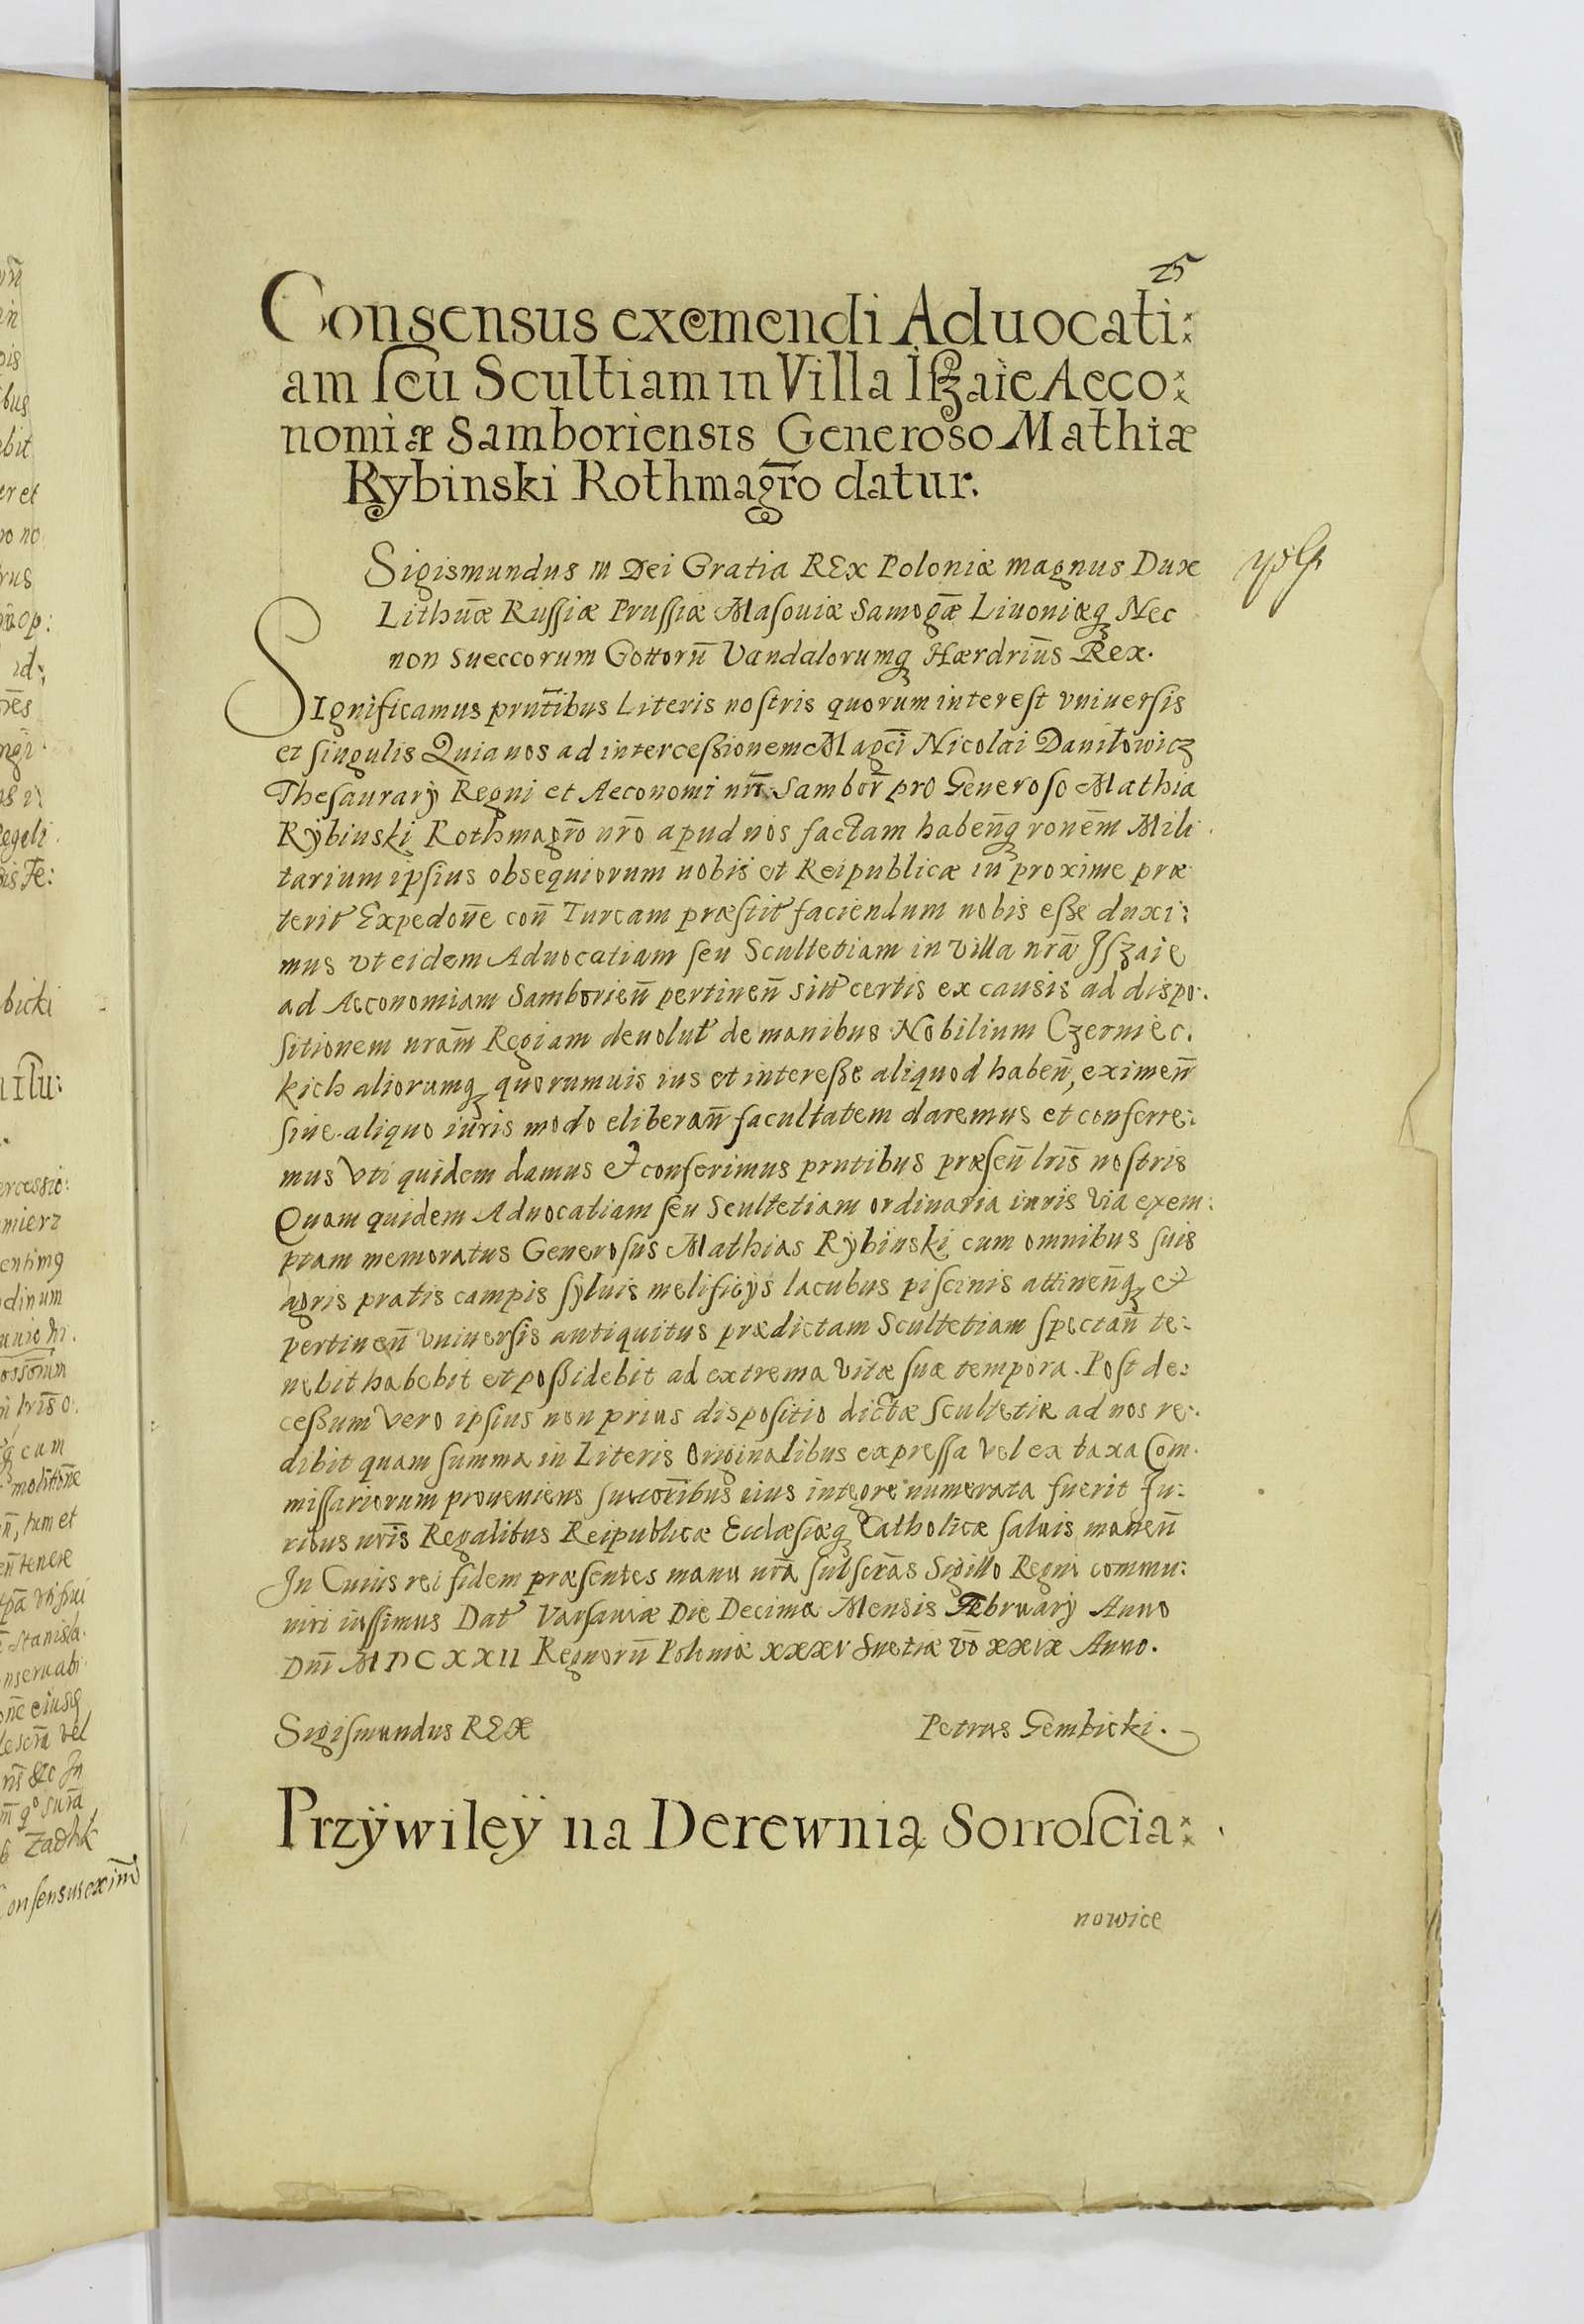 25
Consensus exemendi Aduocati:
am seu Scultiam in Villa Iszaie Aeco:
nomiæ Samboriensis Generoso Mathiæ
Rybinski Rothmagr̃o datur.
Sigismundus III Dei Gratia REx Poloniæ magnus Dux
Lithũæ Russiæ Prussiæ Masouiæ Samog̃æ Liuoniæq Nec
non sueccorum Gottorũ Vandalorumq Hærdriũs Rex.
SIgnificamus prñtibus Literis nostris quorum interest vniuersis
et singulis Quia nos ad intercessionem Magc̃i Nicolai Daniłowicz
Thesaurarÿ Regni et Aeconomi nr̃i Sambor̃ pro Generoso Mathia
Rÿbinski Rothmagr̃o nr̃o apud nos factam habeñq ronẽm Mili
tarium ipsius obsequiorum nobis et Reipublicæ in proxime præ
terit̃ Expedoñe coñ Turcam præstit̃ faciendum nobis esse duxi:
mus vt eidem Aduocatiam seu Scultetiam in Villa nr̃a Jszaie
ad Aeconomiam Samborieñ pertineñ sit̃ certis ex causis ad dispo:
sitionem nrãm Regiam deuolut̃ de manibus Nobilium Czerniec.
kich aliorumq quorumuis ius et interesse aliquod habeñ, eximeñ
siue aliquo iuris modo eliberañ facultatem daremus et conferre:
mus Vti quidem damus et conferimus prntibus præseñ lr̃is nostris
Quam quidem Aduocatiam seu Scultetiam ordinaria iuris via exem:
ptam memoratus Generosus Mathias Rÿbinski cum omnibus suis
agris pratis campis syluis melificÿs lacubus piscinis attineñq et
pertineñ vniuersis antiquitus prædictam Scultetiam spectañ te:
nebit habebit et possidebit ad extrema vitæ suæ tempora. Post de:
cessum vero ipsius non prius dispositio dictæ scultetiæ ad nos re:
dibit quam summa in Literis Originalibus expressa vel ex taxa Com.
missariorum proueniens succoribus eius integre numerata fuerit Ju:
ribus nr̃is Regalibus Reipublicæ Ecclæsiæq Catholicæ saluis maneñ
In Cuius rei fidem præsentes manu nr̃a subscr̃as Sigillo Regni commu:
niri iussimus Dat̃ Varsauiæ Die Decima Mensis Februarÿ Anno
Dñi MDCXXII Regnorũ Poloniæ XXXV Suetiæ v̄o XXIX Anno.
Sigismundus REX
Petrus Gembicki.
Przÿwileÿ na Derewnią Sorroscia:
nowice